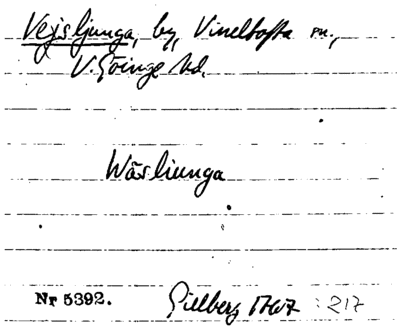 Vejsljunga, by, Vineltofta sn.,
V. Göinge hd.
Wäsliunga
Nr 5392. Gillberg 1767 : 217